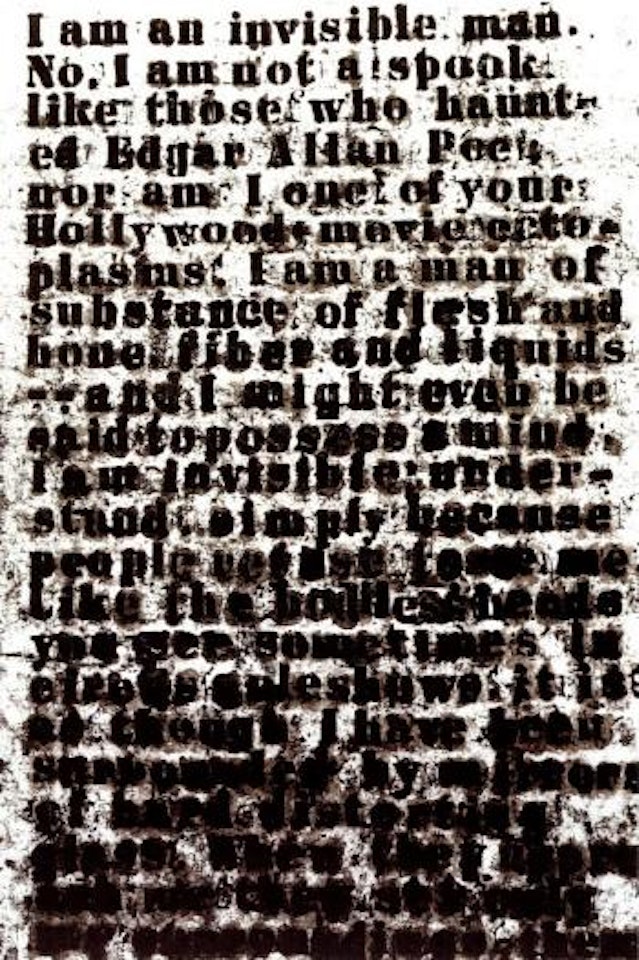 I am an invisible man.
No, I am not a spook
like those who haunt-
ed Edgar Allan Poe;
nor am I one of your
Hollywood-movie ecto-
plasms. I am a man of
substance, of flesh and
bone, fiber and liquids
--and I might even be
said to possess a mind.
I am invisible, under-
stand, simply because
people refuse to see me.
Like the bodiless heads
you see sometimes in
circus sideshows, it is
as though I have been
surrounded by mirrors
of hard, distorting